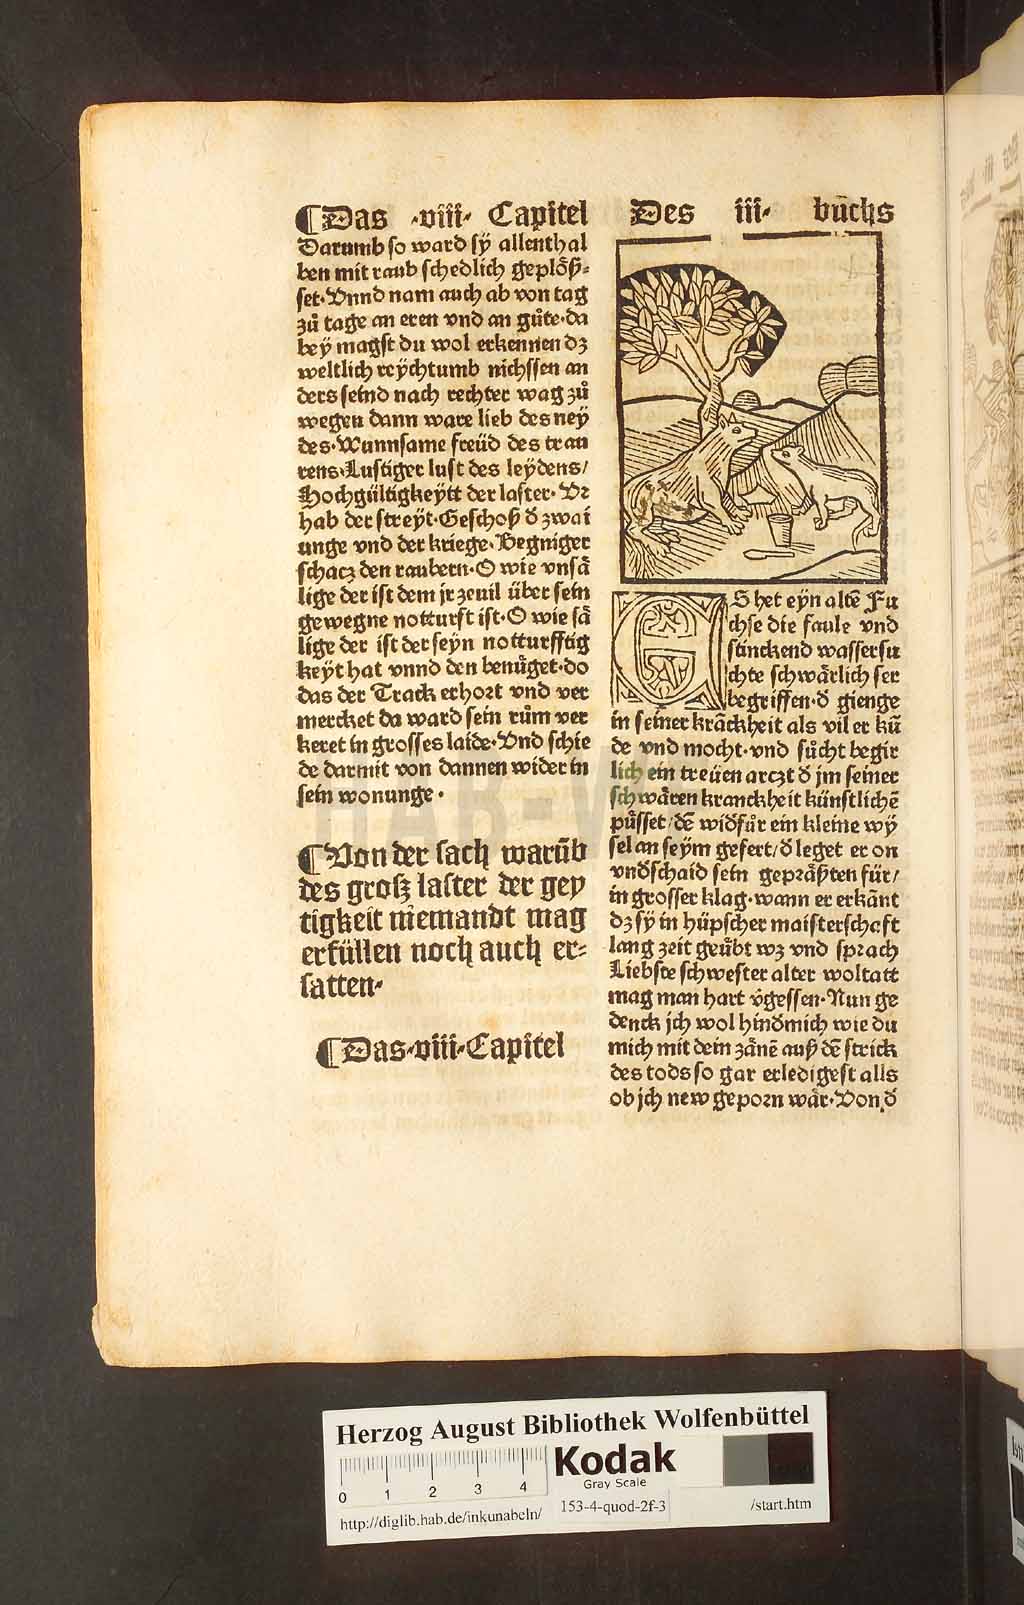 ¶Das ·viii· Capitel
Darumb so ward sÿ allenthal
ben mit raub schedlich geplöß⸗
set·Vnnd nam auch ab von tag
zuͦ tage an eren vnd an guͦte·da
beÿ magst du wol erkennen dz
weltlich reÿchtumb nichssen an
ders seind nach rechter wag zuͦ
wegen dann ware lieb des neÿ
des·Wunnsame freüd des trau
rens·Lustiger lust des leÿdens/
Hochgültigkeÿtt der laster·Vr
hab der streÿt·Geschoß d̕ zwai
unge vnd der kriege·Begniger
schacz den raubern·O wie vnsā
lige der ist dem jr zeuil über sein
gewegne notturft ist·O wie sä
lige der ist der seÿn notturfftig
keÿt hat vnnd den benuͤget·do
das der Track erhort vnd ver
mercket da ward sein ruͦm ver
keret in grosses laide·Vnd schie
de darmit von dannen wider in
sein wonunge·
¶Von der sach warūb
des grosz laster der gey
tigkeit niemandt mag
erfüllen noch auch er⸗
satten·
¶Das·viii·Capitel
Des iii· buͦchs
ES het eÿn altē Fu
chse die faule vnd
stinckend wassersu
chte schwärlich ser
begriffen·d̕ gienge
in seiner kräckheit als vil er kū
de vnd mocht·vnd suͦcht begir
lich ein treüen arczt d̕ jm seiner
schwären kranckheit künstlichē
puͤsset/dē wid̕fuͦr ein kleine wÿ
sel an seÿm gefert/d̕ leget er on
vnd̕schaid sein gepräßten für/
in grosser klag·wann er erkānt
dz sÿ in hüpscher maisterschaft
lang zeit geuͤbt wz vnd sprach
Liebste schwester alter woltatt
mag man hart v̕gessen·Nun ge
denck jch wol hind̕mich wie du
mich mit dein zänē auß dē strick
des tods so gar erledigest alls
ob jch new geporn wär·Von d̕
Herzog August Bibliothek Wolfenbüttel
0 1 2 3 4
Kodak
Gray Scale
http://diglib.hab.de/inkunabeln/
153-4-quod-2f-3
/start.htm